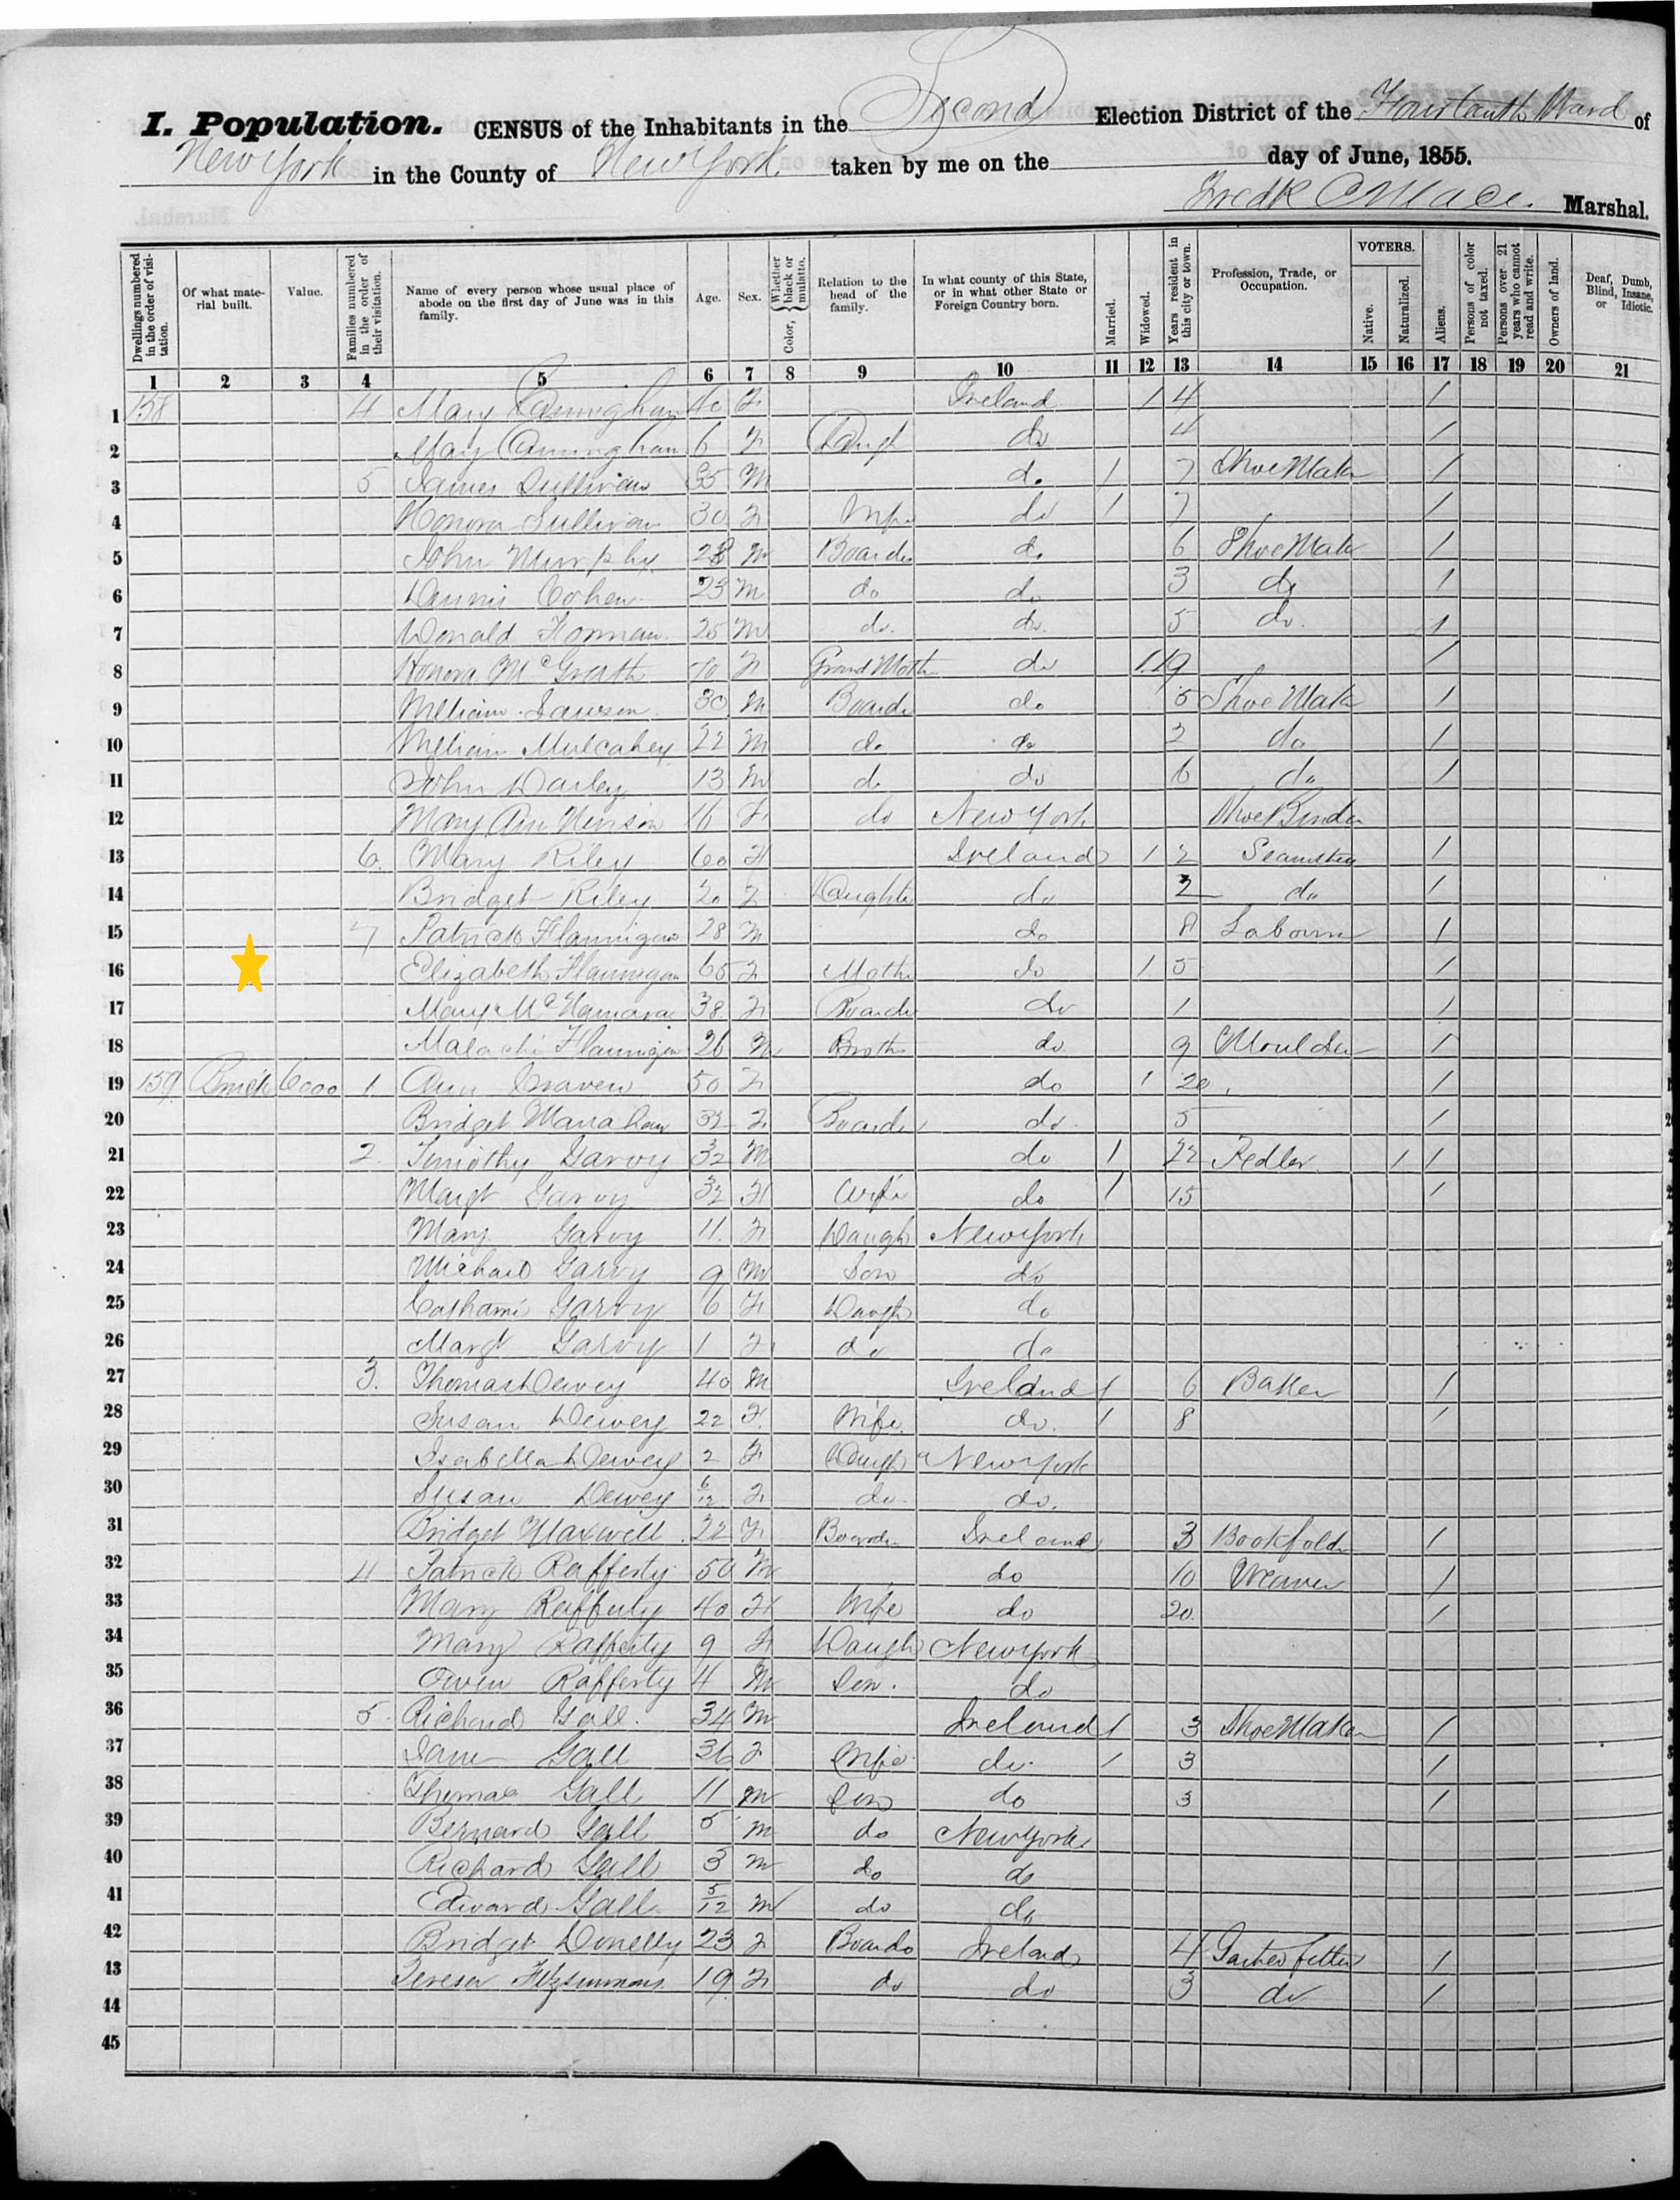 I. Population. CENSUS of the Inhabitants in the Second Election District of the Fourteenth Ward of
New York in the County of New York taken by me on the day of June, 1855.
Fredk Marshal.
Dwellings numbered in the order of visitation. Of what material built. Value. Families numbered in the order of their visitation. Name of every person whose usual place of abode on the first day of June was in this family. Age. Sex. Color, Whether black or mulatto. Relation to the head of the family. In what county of this State, or in what other State or Foreign Country born. Married. Widowed. Years resident in this city or town. Profession, Trade, or Occupation. VOTERS. Native. Naturalized. Aliens. Persons of color not taxed. Persons over 21 years who cannot read and write. Owners of land. Deaf, Dumb, Blind, Insane, or Idiotic.
1 2 3 4 5 6 7 8 9 10 11 12 13 14 15 16 17 18 19 20 21
1 158 4 Mary Cunnigham 40 F Ireland 1 4 1
2 Mary Cunningham 6 F Daugh do 4 1
3 5 James Sullivan 35 M do 1 7 Shoe Maker 1
4 Honora Sullivan 30 F Wife do 1 7 1
5 John Murphy 28 M Boarder do 6 Shoe Maker 1
6 Dennis Cohen 23 M do do 3 do 1
7 Donald 25 M do. do. 5 do. 1
8 Honora McGrath 70 F Grand Moth do 1 19 1
9 William 30 M Boarder do 5 Shoe Maker 1
10 William Mulcahey 22 M do do 2 do 1
11 John Darley 13 M do do 6 do 1
12 Mary Ann 16 F do New York Shoe Binder
13 6. Mary Riley 60 F Ireland 1 2 Seamstress 1
14 Bridget Riley 20 F Daughter do 2 do 1
15 7 Patrick Flannigan 28 M do 8 Labourer 1
16 Elizabeth Flannigan 65 F Mother do 1 5 1
17 Mary McNamara 38 F Boarder do 1 1
18 Malachi Flannigan 26 M Broth do 9 Moulder 1
19 159 Brick 6000 1 Ann Craven 50 F do 1 20 1
20 Bridget Manahan 32 F Boarder do 5 1
21 2. Timothy Garvy 32 M do 1 22 Pedler 1 1
22 Margt Garvy 32 F Wife do 1 15 1
23 Mary Garvy 11. F Daugh New York
24 Michael Garvy 9 M Son do
25 Catharine Garvy 6 F Daugh do
26 Margt Garvy 1 F do do
27 3. Thomas Dewey 40 M Ireland 1 6 Baker 1
28 Susan Dewey 22 F. Wife do. 1 8 1
29 Isabella Dewey 2 F Daugh New York
30 Susan Dewey 6/12 F do. do.
31 Bridget Maxwell 22 F Boarder Ireland 3 Bookfolder 1
32 4 Patrick Rafferty 50 M do 10 Weaver 1
33 Mary Rafferty 40 F Wife do 20 1
34 Mary Rafferty 9 F Daugh New York
35 Owen Rafferty 4 M Son. do
36 5 Richard Gall. 34 M Ireland 1 3 Shoe Maker 1
37 Jane Gall 36 F Wife do 1 3 1
38 Thomas Gall 11 M Son do 3 1
39 Bernard Gall 5 M do New York
40 Richard Gall 3 M do do
41 Edward Gall 5/12 M do do
42 Bridget Donelly 23 F Boarder Ireland 4 1
43 Teresa Fitzsimmons 19 F do do 3 do 1
44
45